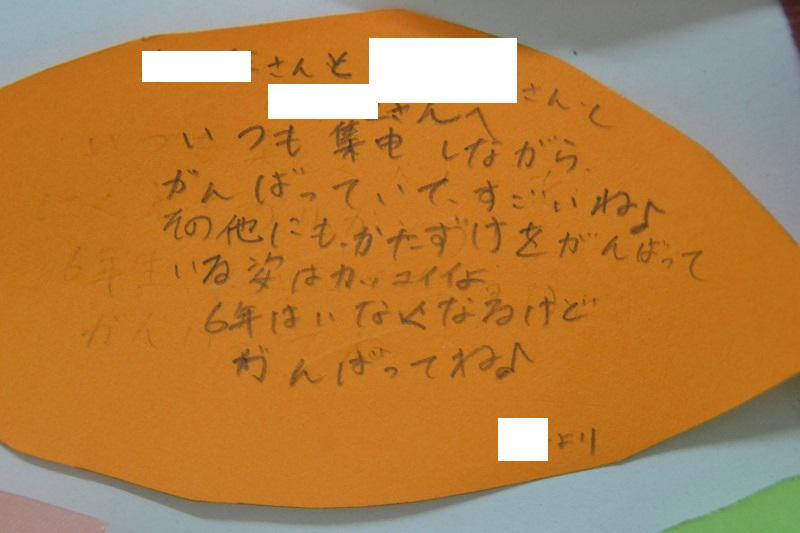 さんと
さんと
さんへ
いつも集中しながら
がんばっていて、すごいね♪
その他にも、かたずけをがんばって
いる姿はカッコイイよ
6年はいなくなるけど
がんばってね♪
より